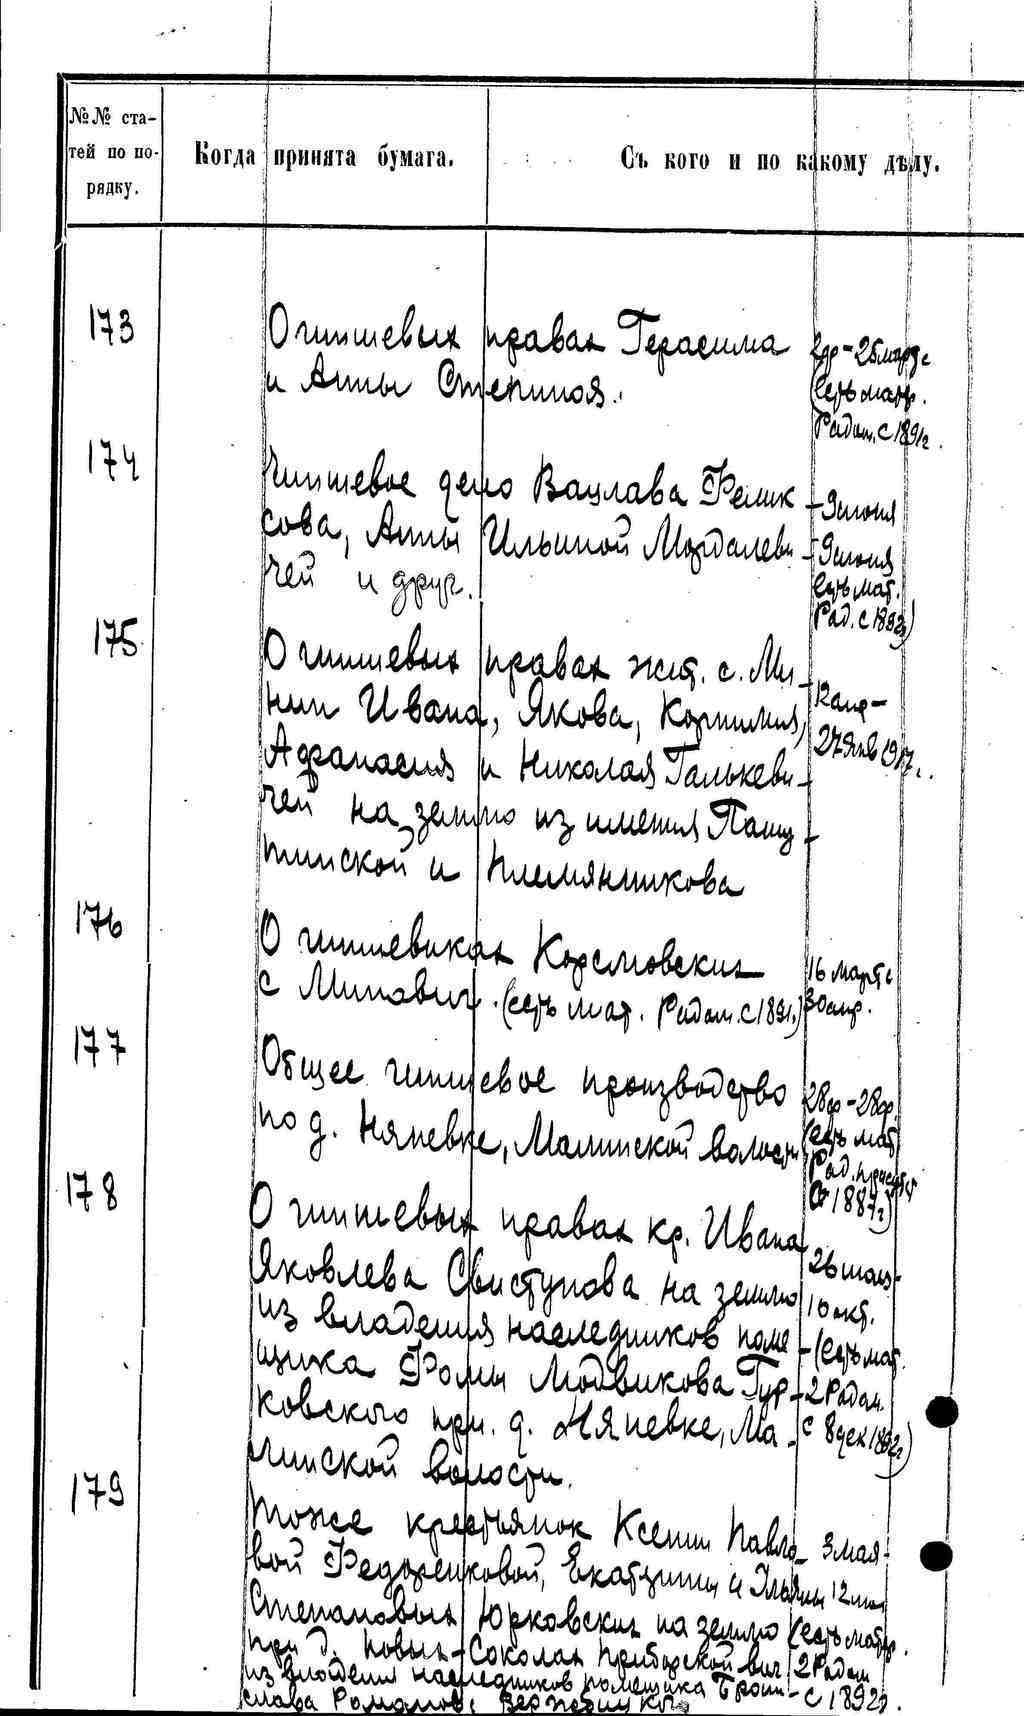 №№ ста-
тей по по-
рядку.
Когда принята бумага.
Съ кого и по какому дѣлу.
173
О чиншевых правах Герасима
и Анны Степиноя.
2 фр - 25 марта
(есть матер.
Радом. с 1891 г.
174
Чиншевое дело Вацлава Феликсова,
Анны Ильиной Мордалеви-
чей и друг.
- 9 июня
- 9 июня
(есть мат.
Рад. с 1892 г)
175
О чиншевых правах жит. с. Ми-
нии Ивана, Якова, Корнилия,
Афанасия и Николая Галькеви-
чей на землю из имения
и Племянникова
12 апр -
27 янв 1917 г.
176
О чиншевиках
с Минович. (есть мат. Радом. с 1891 г.)
16 марта
30 апр.
177
Общее чиншевое производство
по д. Няневке, Малинской волости
28 ф - 28 ф.
(есть мат
Рад. присутст
с 1887 г)
178
О чиншевых правах кр. Ивана
Яковлева Свистунова на землю
из владения наследников поме-
щика Фомы Людвикова Гур-
ковского при д. Няневке, Ма-
линской волости.
26 мая -
16 окт.
(есть мат.
2 Радом.
с 8 дек 1892 г)
179
Тоже крестьянок Ксении Павло-
вой Федоренковой, Екатерины и Ульяны
Степановых Юрковских на землю
при д. Новых-Соколах Приборской вол
из владения наследников помещика Брони-
слава Романова
3 мая -
12 июл
(есть матер.
2 Радом
с 1892 г.